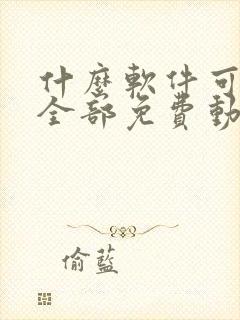 什麼軟件可
全部免費動
偷藍